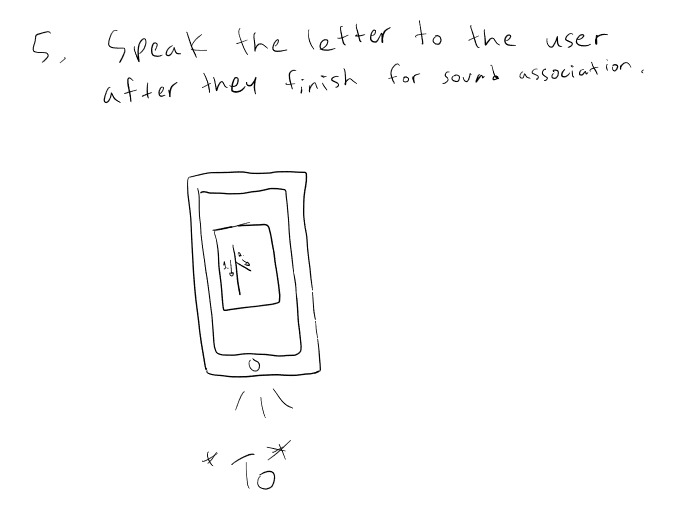 5. Speak the letter to the user
after they finish for sound association.
ト
1.
2.
*To*